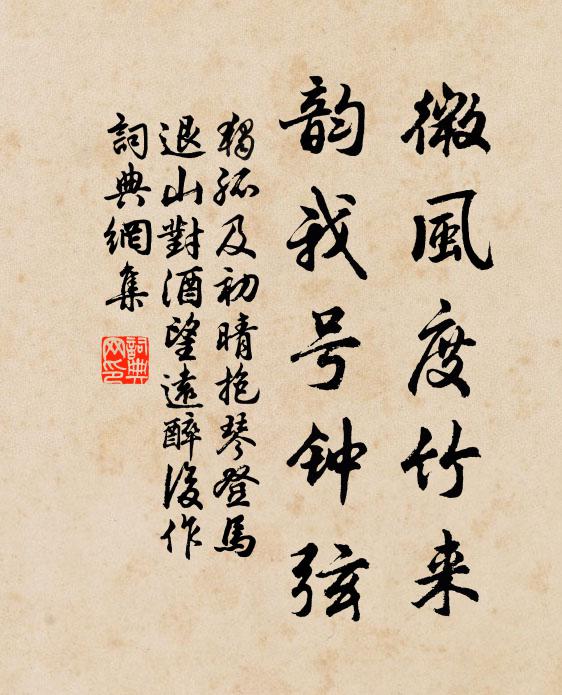 微風度竹来
韵我号钟弦
獨孤及初晴抱琴登馬
退山對酒望遠醉後作
詞典網集
詞典
网印